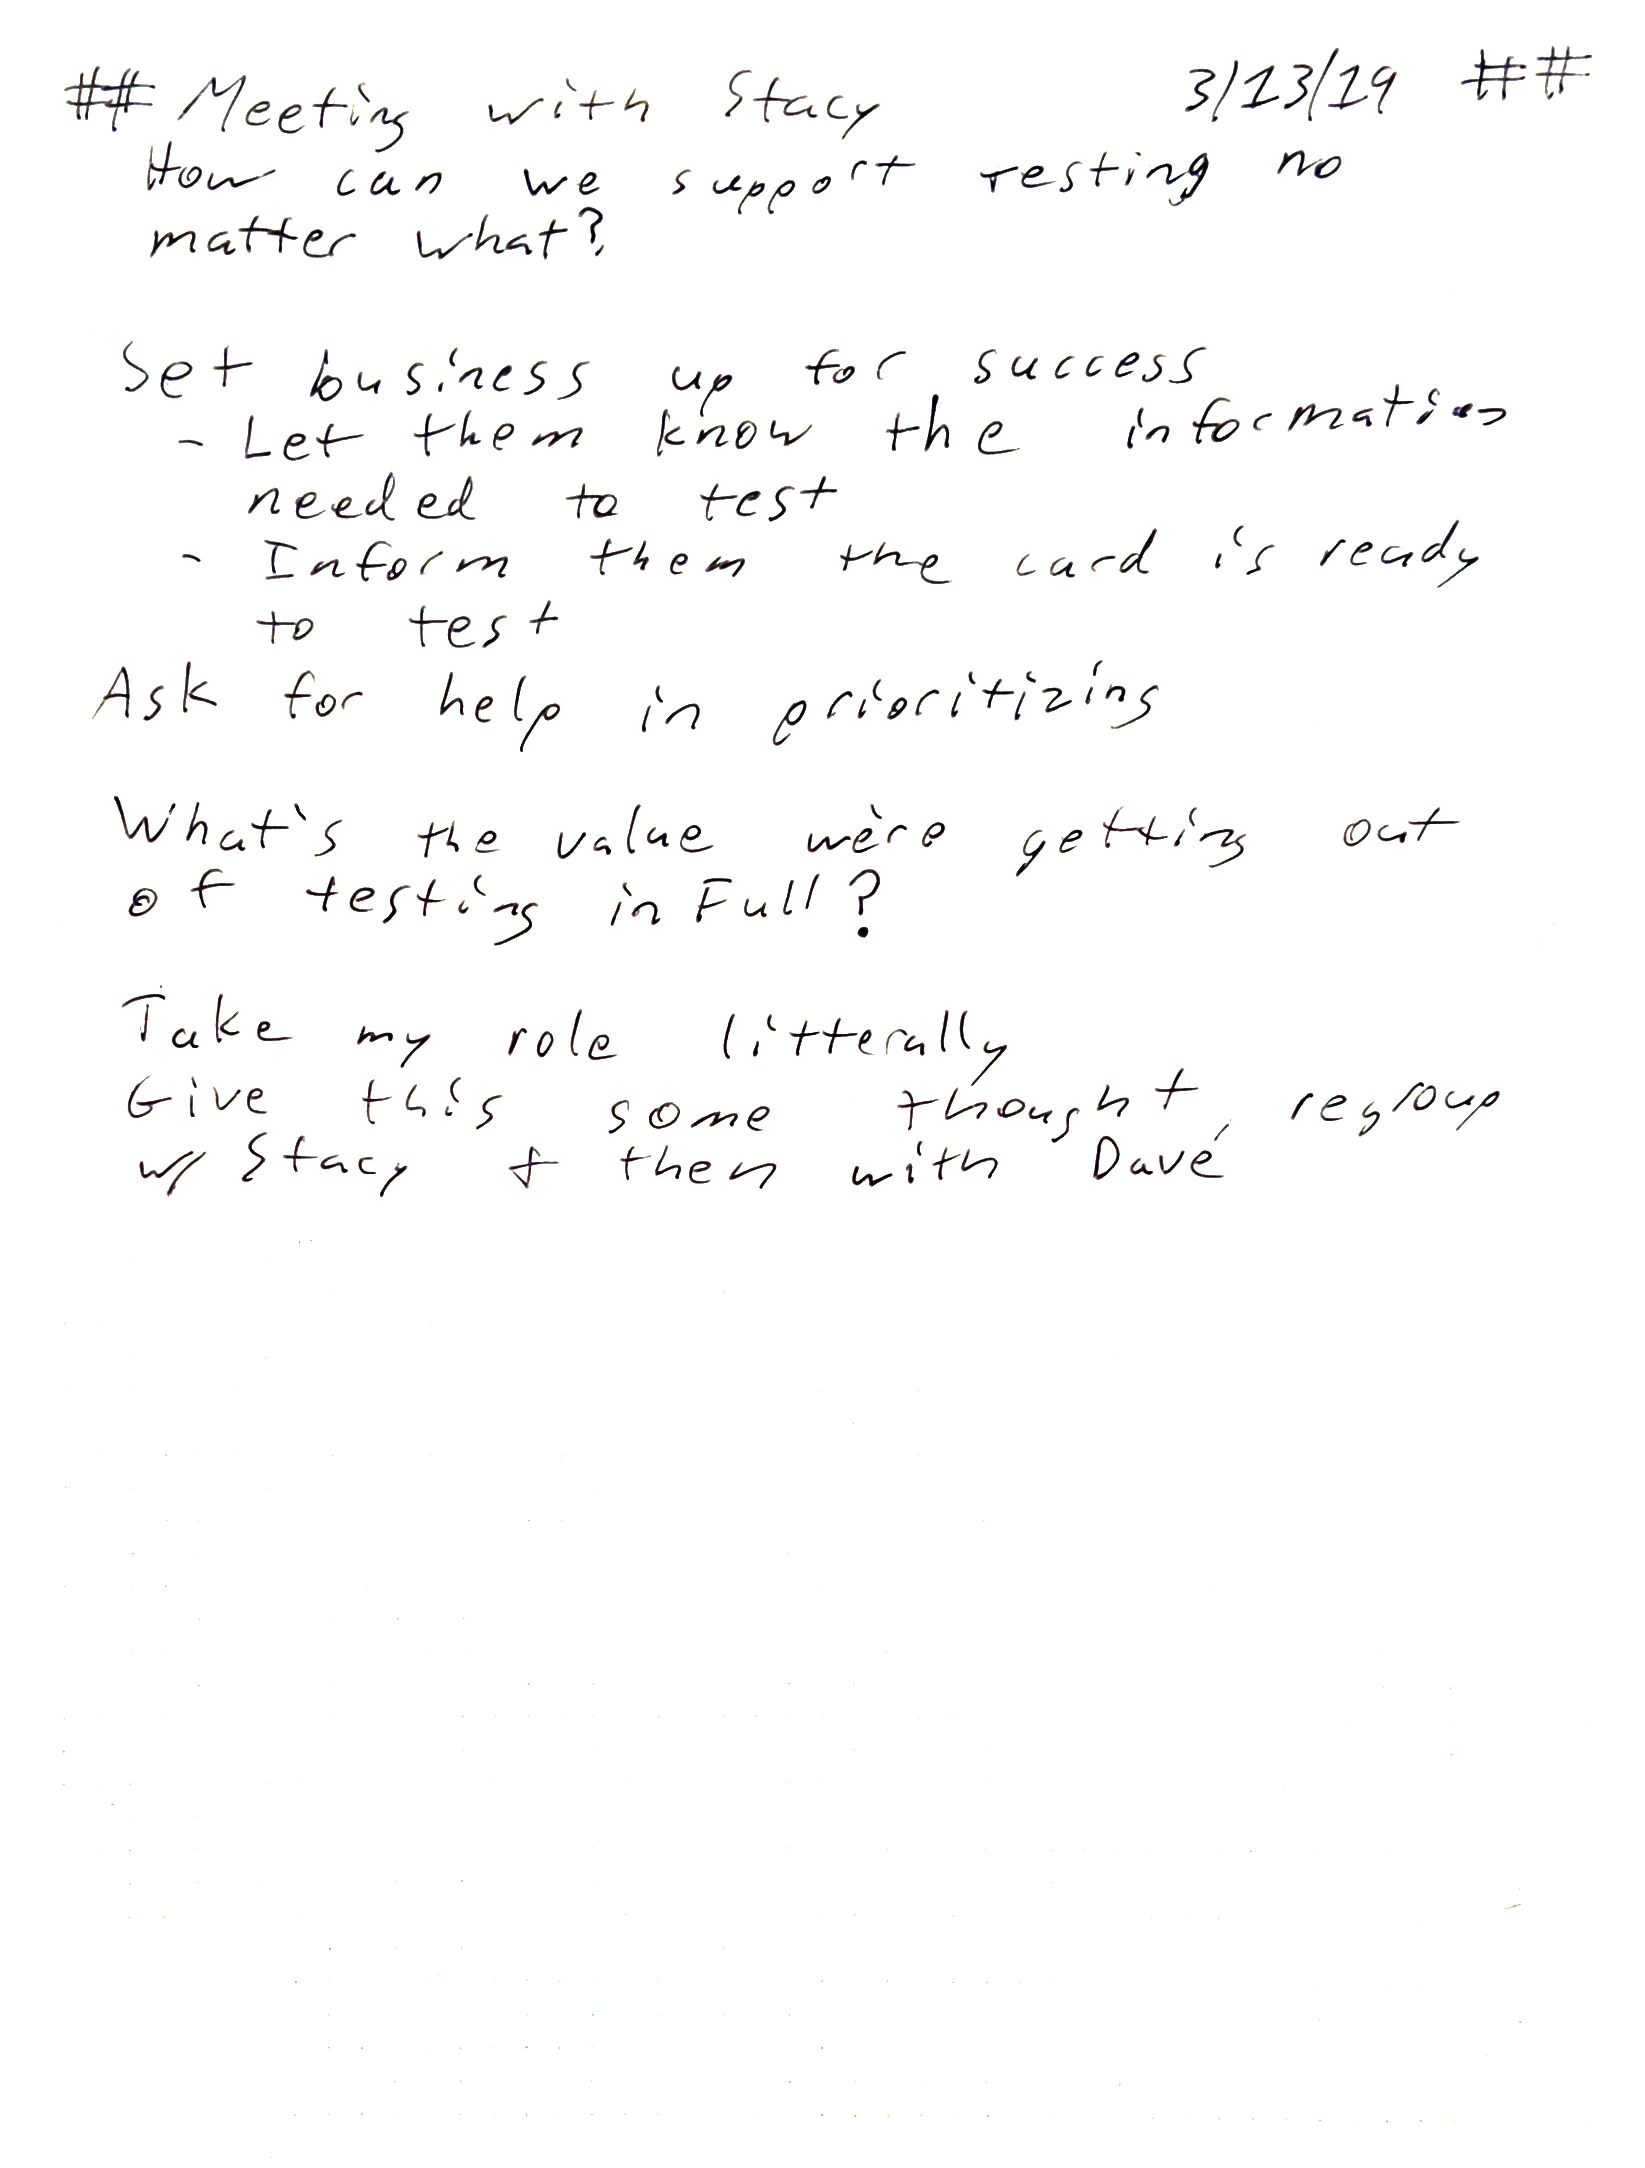 ## Meeting with Stacy 3/13/19 ##
How can we support testing no
matter what?
Set business up for success
- Let them know the information
needed to test
- Inform them the card is ready
to test
Ask for help in prioritizing
What's the value we're getting out
of testing in Full?
Take my role litterally
Give this some thought, regroup
w/ Stacy & then with Dave